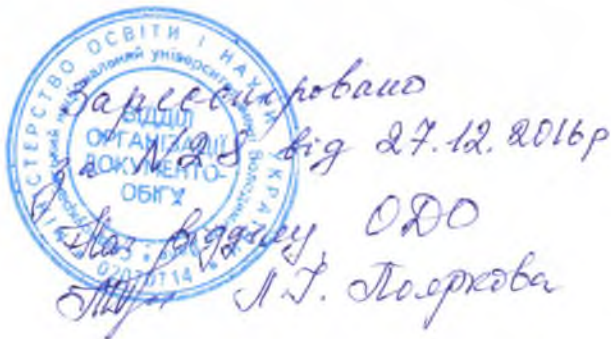 МІНІСТЕРСТВО ОСВІТИ І НАУКИ УКРАЇНИ
національний університет імені Володимира
ВІДДІЛ
ОРГАНІЗАЦІЇ
ДОКУМЕНТО-
ОБІГУ
02070714
за №28 від 27.12.2016р
відділу ОДО
Л.Г. Пояркова